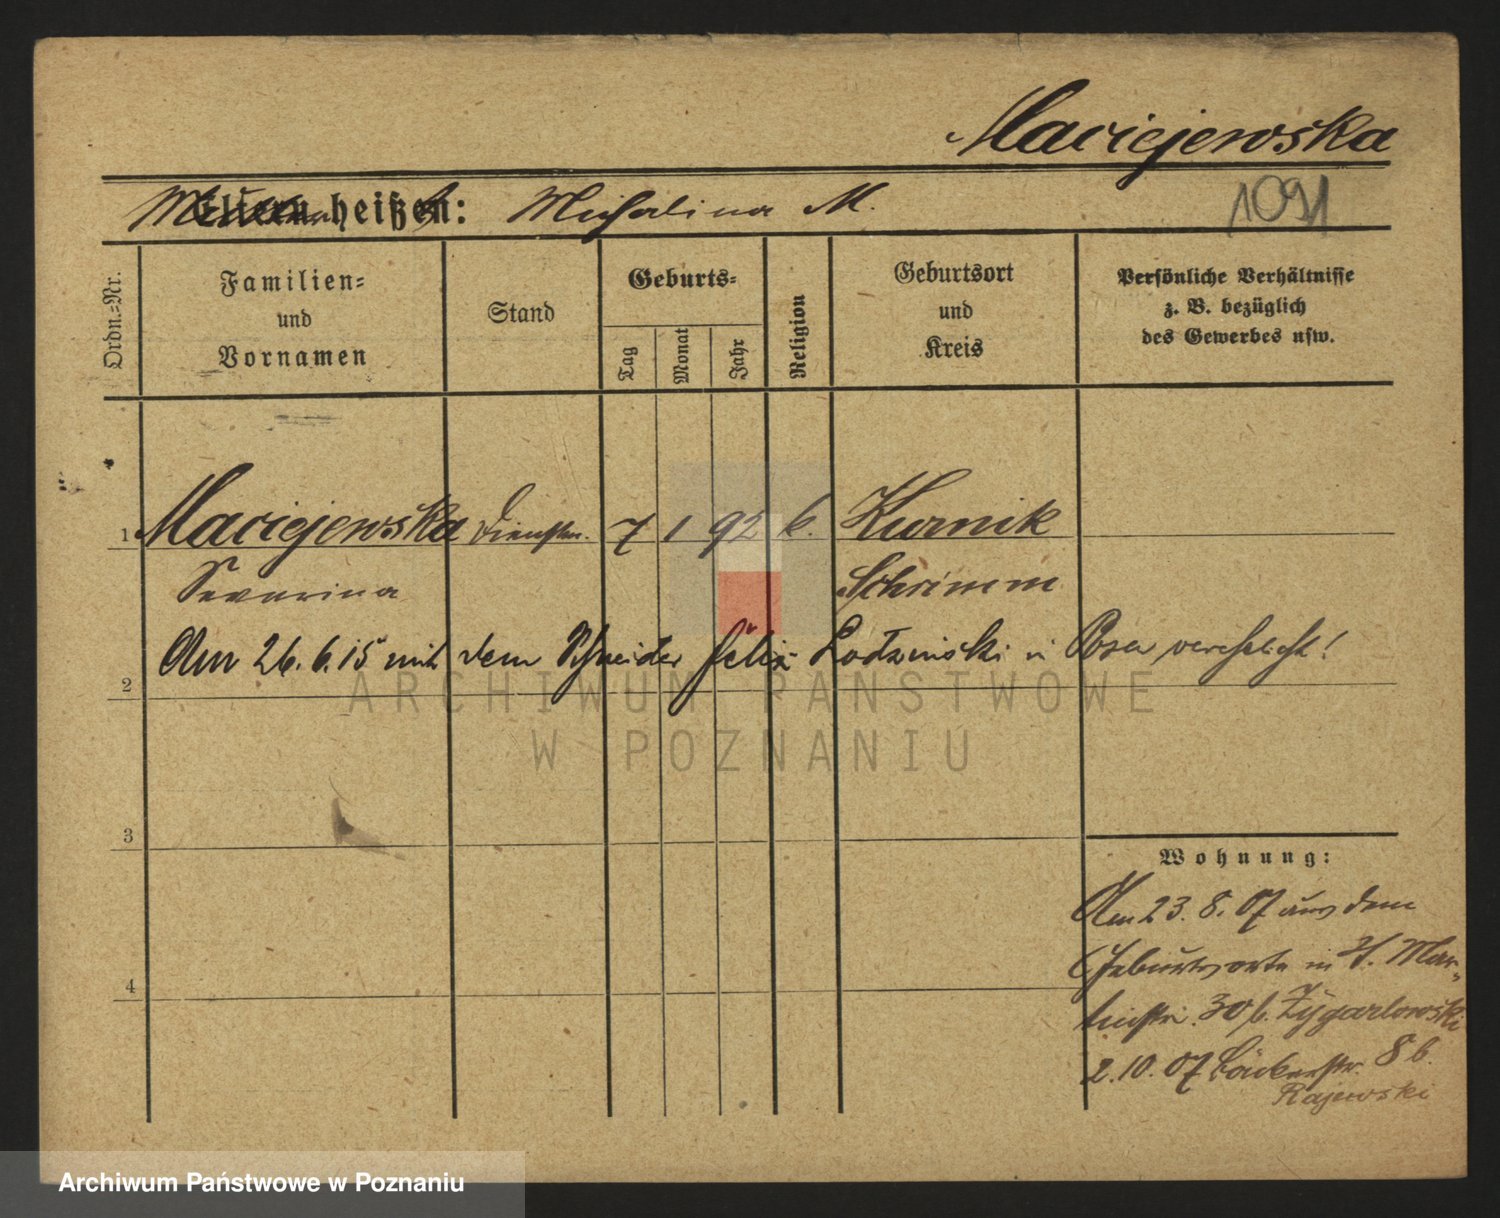 Maciejewska
Eltern heißen: Michalina M.
1091
Ordn.=Nr.
Familien=
und
Vornamen
Stand
Geburts=
Tag
Monat
Jahr
Religion
Geburtsort
und
Kreis
Persönliche Verhältnisse
z. B. bezüglich
des Gewerbes usw.
1 Maciejewska Dienstm. 7 1 92 k. Kurnik
Severina Schrimm
Am 26.6.15 mit dem Schneider Felix Lodzinski in Posen verehelicht!
2
ARCHIWUM PAŃSTWOWE
W POZNANIU
3
Wohnung:
Am 23.8.07 aus dem
Geburtsorte in St. Mar-
4
tinstr. 30 b. Zygarlowski
2.10.07 Bäckerstr. 8 b.
Rajewski
Archiwum Państwowe w Poznaniu